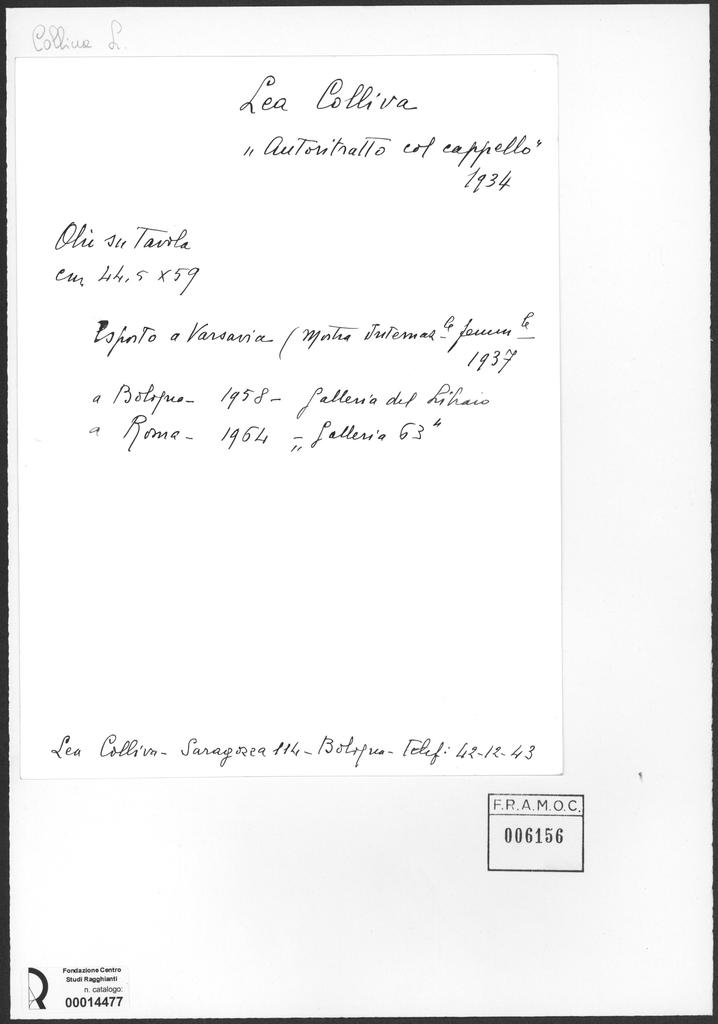 Colliva L.
Lea Colliva
„Autoritratto col cappello"
1934
Olio su Tavola
cm 44,5 x 59
Esposto a Varsavia (Mostra Internaz.le femm.le
1937
a Bologna - 1958 - Galleria del Libraio
a Roma - 1964 - „Galleria 63"
Lea Colliva - Saragozza 114 - Bologna - Telef: 42-12-43
F.R.A.M.O.C.
006156
Fondazione Centro
Studi Ragghianti
n. catalogo:
00014477